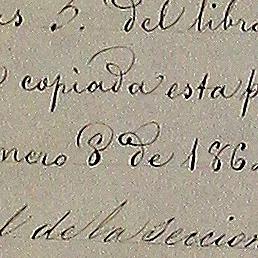 s 3. del libr
copiada esta p
nero 8 de 186
l de la Seccion